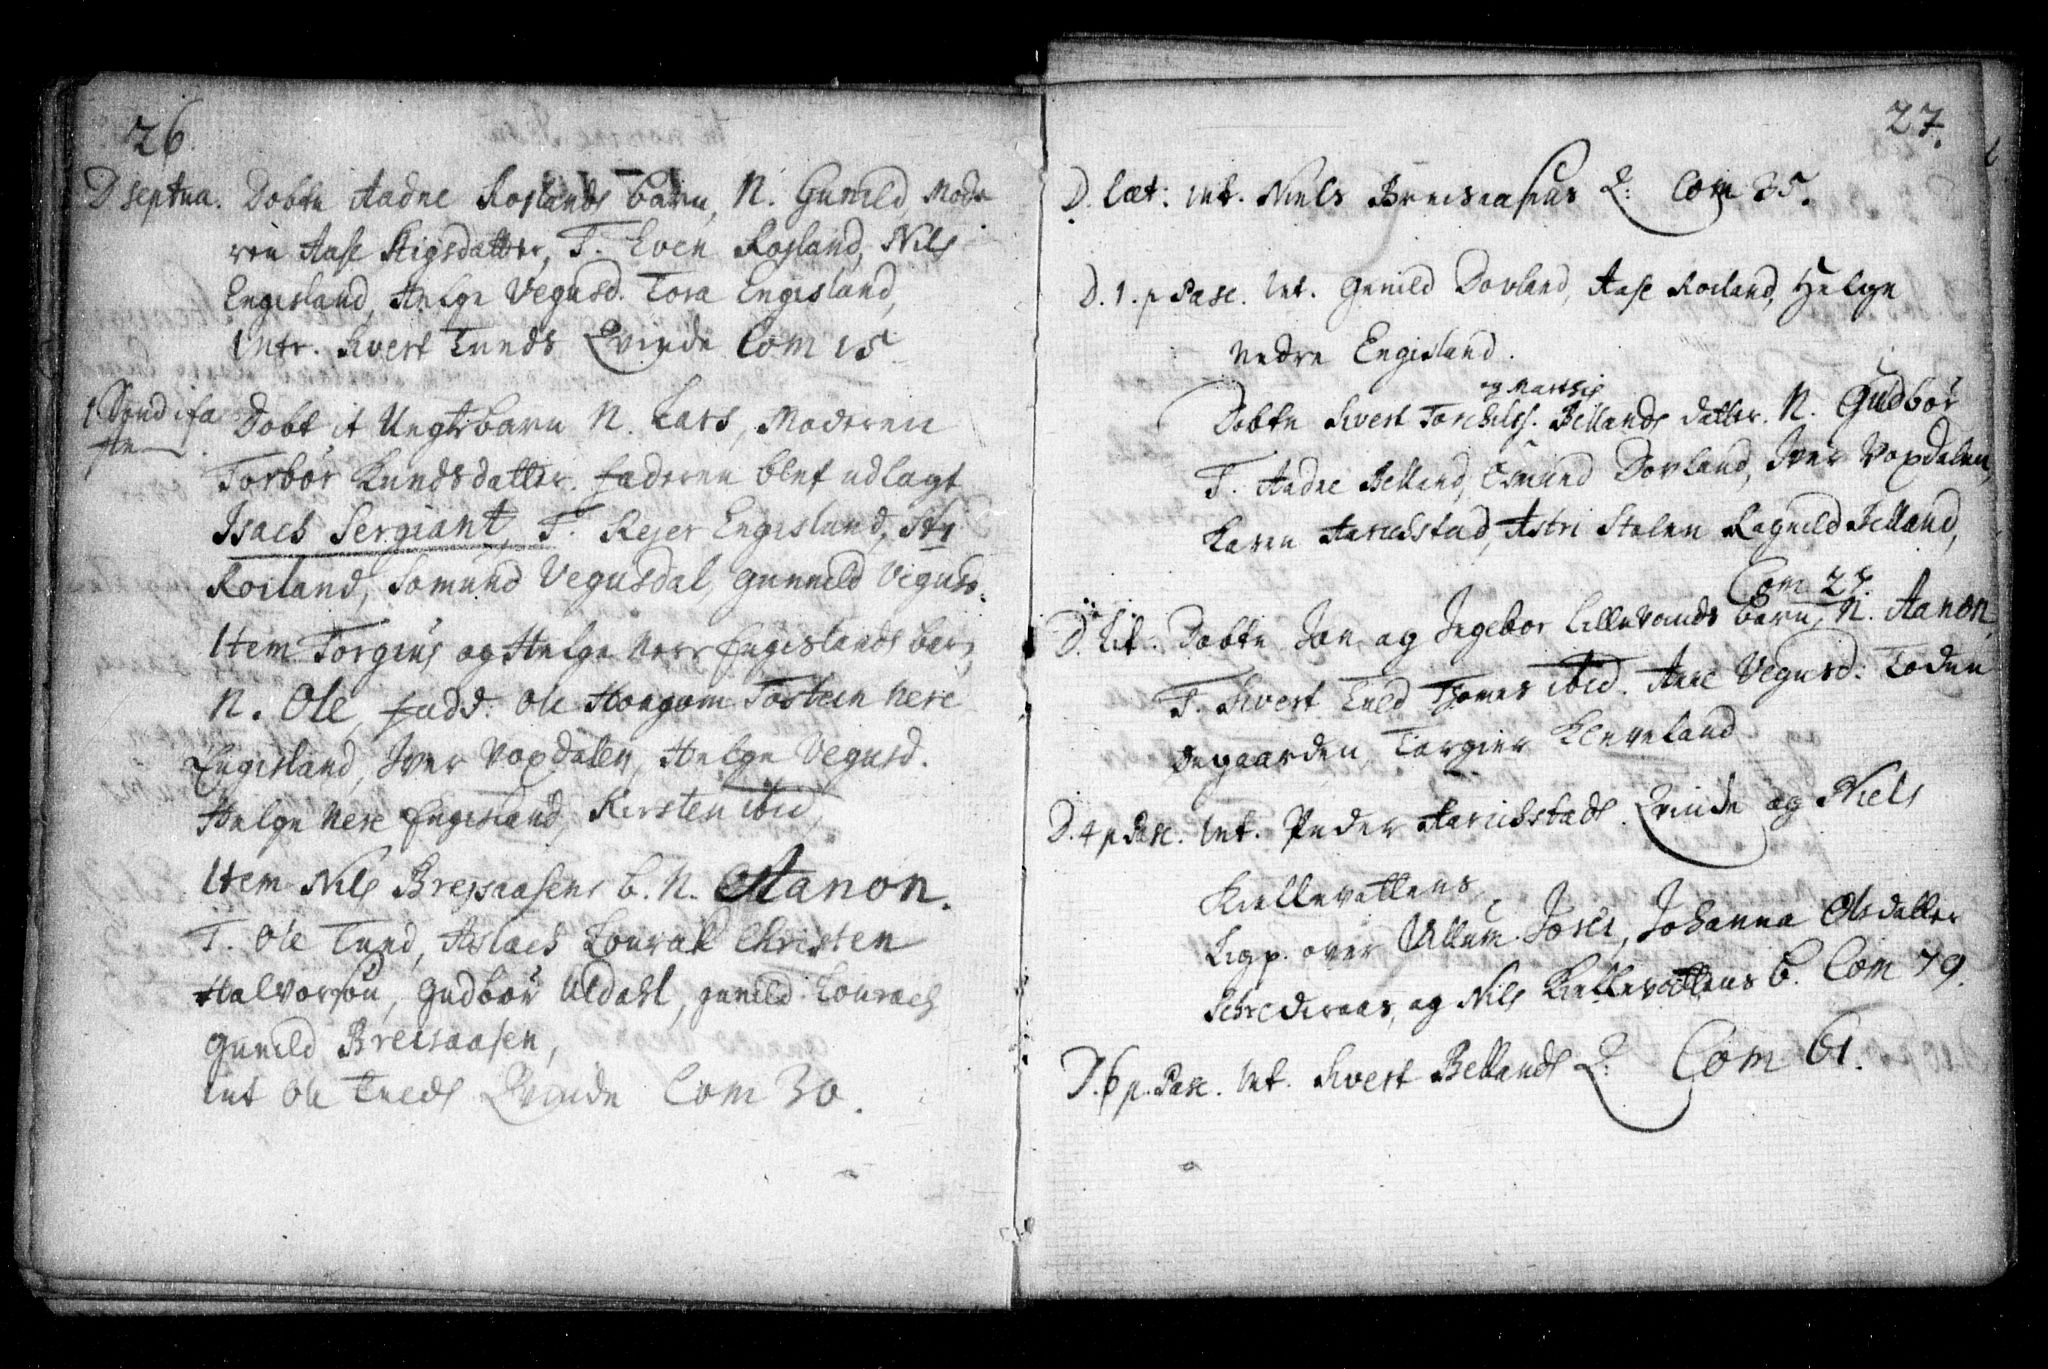 26.
D septua. Dobte Aadne Roslands barn, N. Gunild, Mode
ren Aase Stigsdatter, F. Even Rosland, Nils
Engesland, Helge Vegusd. Tora Engesland,
Intr. Sivert Tveds Qvinde Com 15
1 Sond i fa
ste Dobt it Uegte barn N. Lars, Moderen
Torbör Knudsdatter. faderen blef udlagt
Isach Sergiant, F. Rejer Engesland,
Rosland, Somund Vegusdal, Gunnild Vegusd.
Item Torgius og Helge Engeslands barn
N. Ole, fadd: Ole Tosteen nere
Engesland, Iver Voxdalen, Helge Vegusd.
Helge nere Engesland, Kirsten ibid,
Item Nils Breisaasens b. N. Aanon.
F. Ole Tued, Aslach Lourak Christen
Halvorson, Gudbör Uldahl, gunild Lourach
Gunild Breisaasen,
int Ole Tveds Qvinde Com 30.
27.
D. læt: int. Niels Breisaasens Q: Com 35.
D. 1. p Pasc. int. Gunild Dovland, Aase Rosland, Helge
nedre Engesland.
Dobte Sivert Torchils. Bellands datter. N. Gudbör
F. Aadne Belland, Osmund Dovland, Iver Voxdalen,
Karen Aarichstad, Astri Stolen Ragnild Belland,
Com 27.
D. Dobte Jon og Ingebor Lillevands barn, N. Aanon,
F. Sivert Tved Thomes ibid. Anne Vegusd: Toden
degaarden, Torgier Kleveland
D. 4 p Pasc. int. Peder Aarichstads Qvinde og Niels
Kiellevattens.
Ligp. over Villum Joseps, Johanna Olsdatter
Schrederaas, og Nils Kiellevattens b. Com 79.
D. 6 p. Pasc. int. Sivert Bellands Q: Com 61.